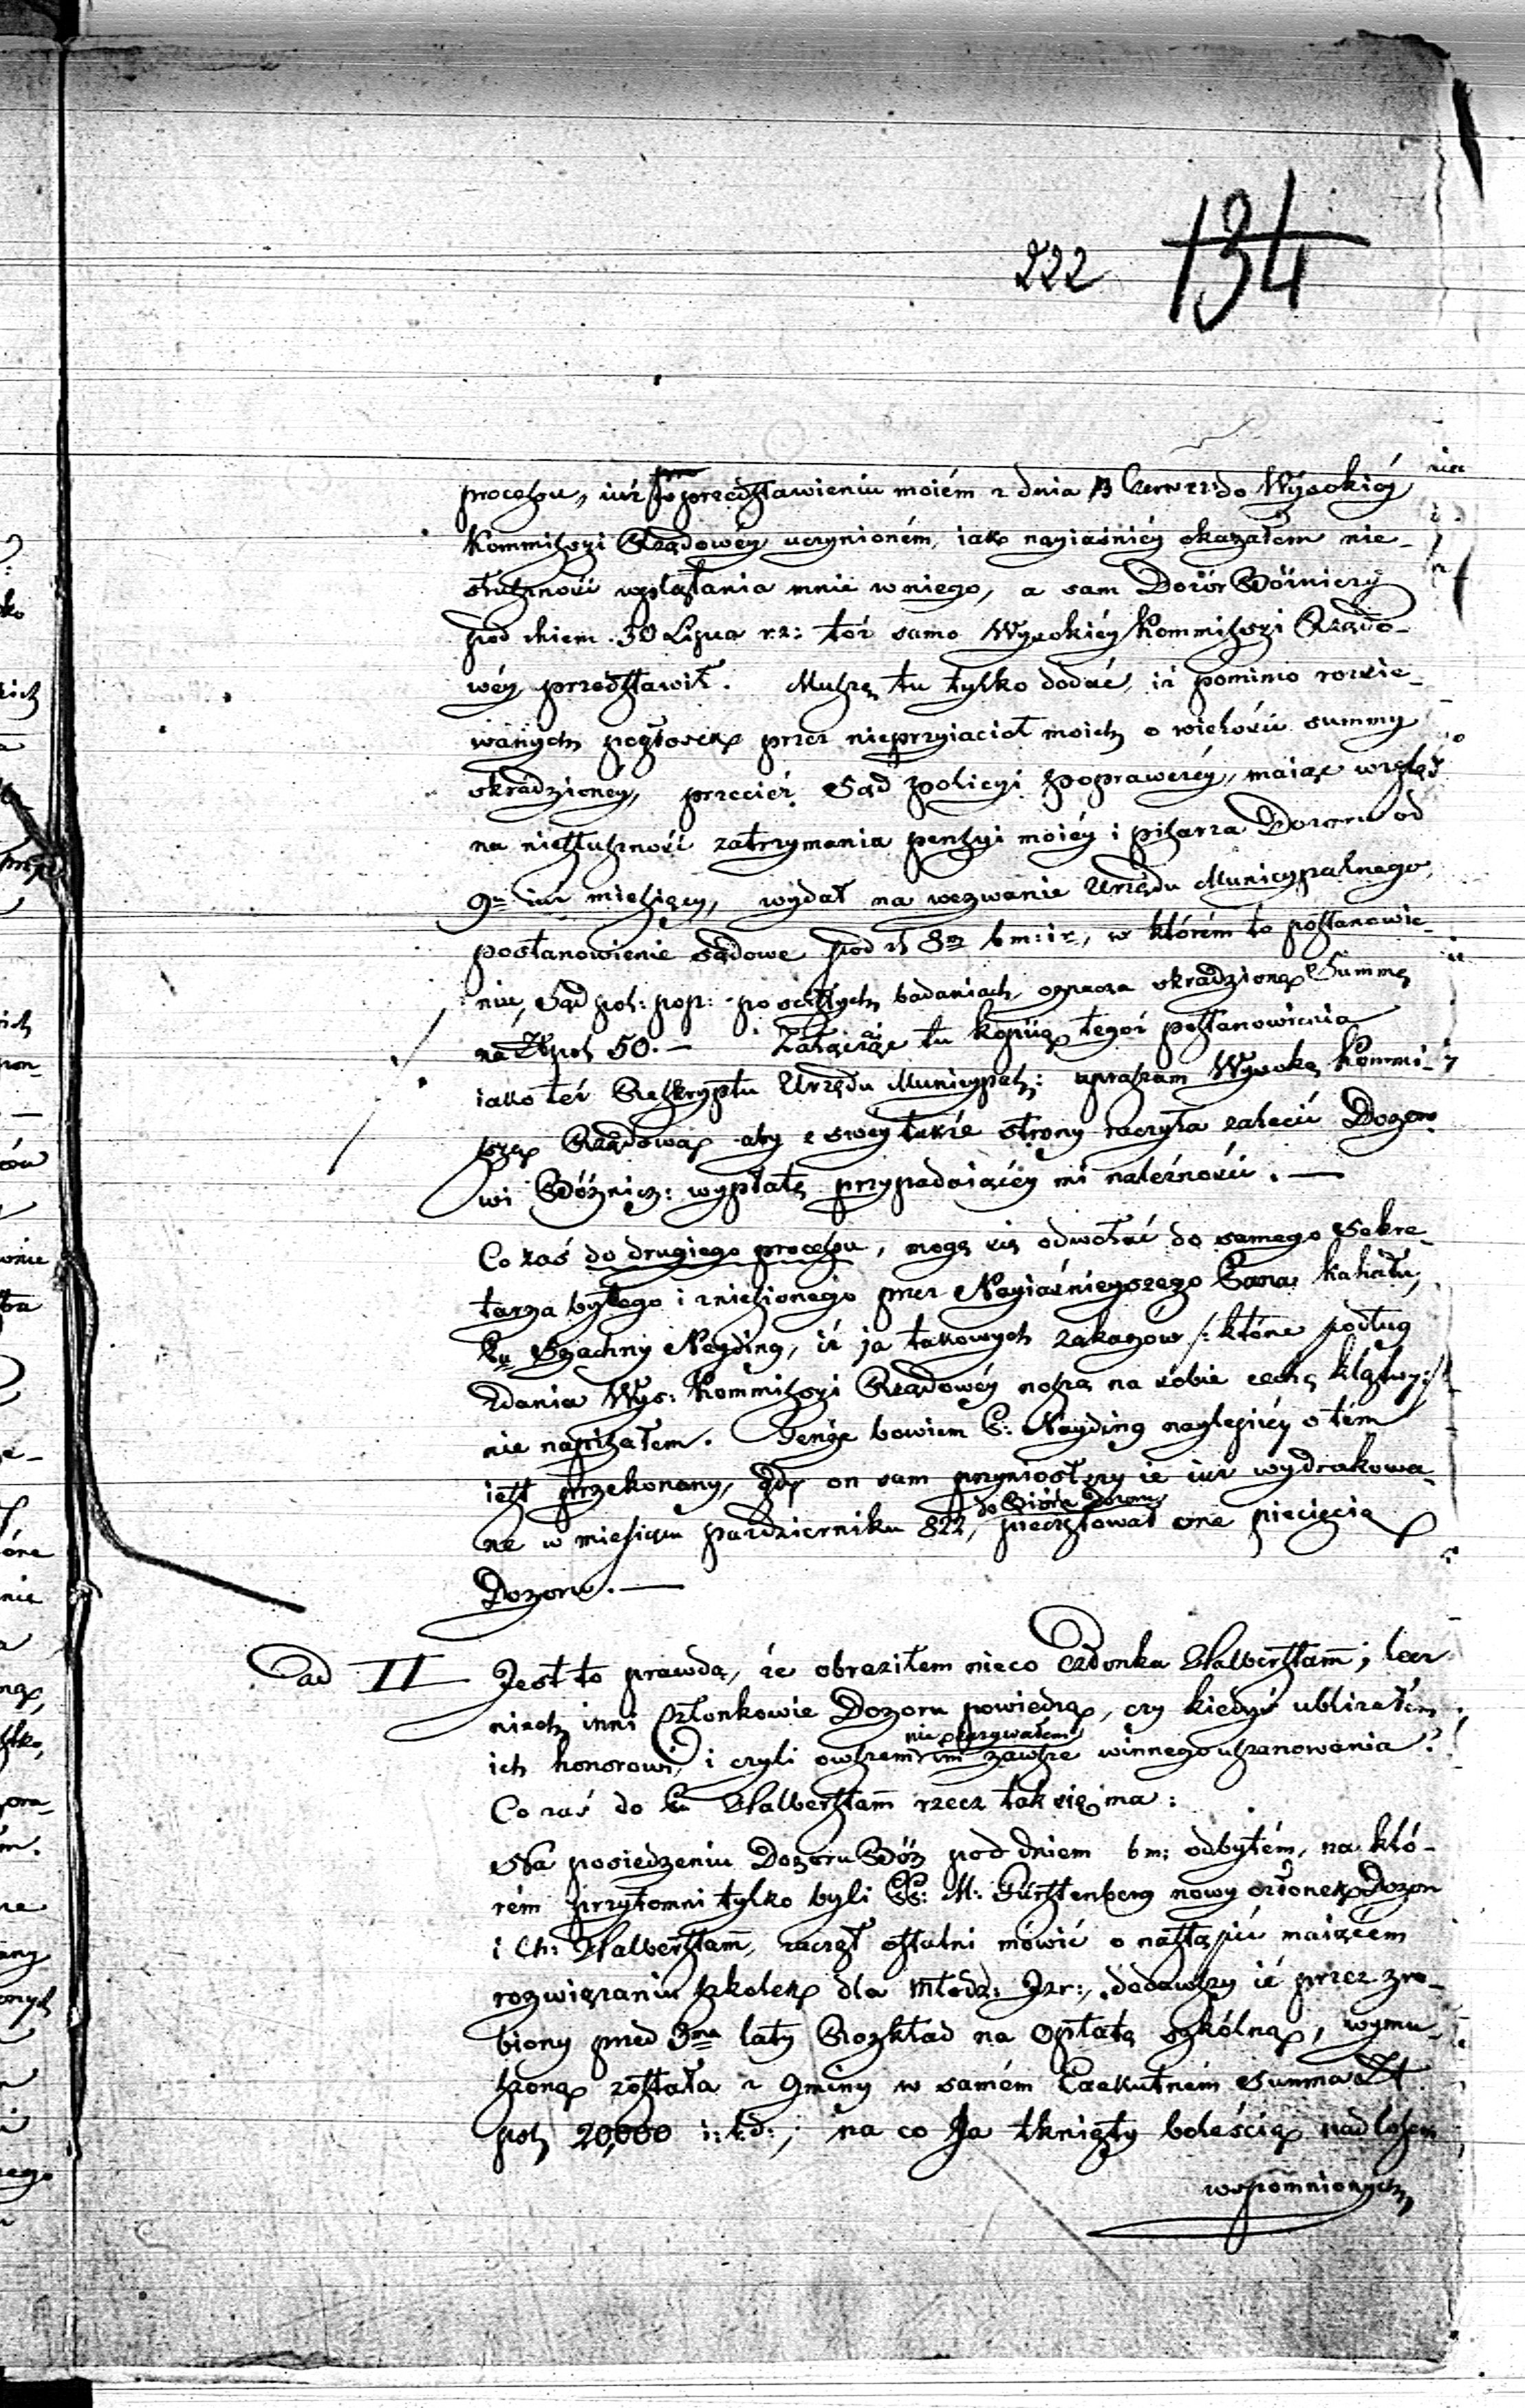 222 134
procesu, iuż przedstawieniu moiém z dnia 13 Czerw r: z: do Wysokiéy
Kommissyi Rządowéy uczynioném, iak nayiaśniéy okazałem nie-
słuszność wplątania mnie w niego, a sam Dozór Bóżniczy
pod dniem 30 Lipca r. z: toż samo Wysokiéy Kommissyi Rządo-
wéy przedstawił. Muszę tu tylko dodać, iż pomimo rozsie-
wanych pogłosek przez nieprzyiaciół moich o wielości summy
skradzionéy, przecież Sąd policyi poprawczéy, maiąc wzgląd
na niesłuszność zatrzymania pensyi moiéy i pisarza Dozoru od
9u iuż miesięcy, wydał na wezwanie Urzędu Municypalnego,
postanowienie sądowe pod d 8m b m: i r:, w którém to postanowie-
niu, Sąd pol: pop: po ścisłych badaniach, oznacza skradzioną Summę
na Złpol 50. — Załączaiąc tu kopiią tegoż postanowienia
iako też Reskryptu Urzędu Municypal: upraszam Wysoką Kommi-
syą Rządową aby z swéy także strony raczyła zalecić Dozoro
wi Bóżnicz: wypłatę przypadaiącéy mi należności. —
Co zaś do drugiego procesu, mogę się odwołać do samego Sekre-
tarza byłego i zniesionego przez Nayiaśnieyszego Pana Kahału,
Pu Szachny Neyding, iż ja takowych zakazów /: które podług
zdania Wys: Kommissyi Rządowéy noszą na sobie cechę klątwy :/
nie napisałem. Tenże bowiem P: Neyding naylepiéy o tém
iest przekonany, gdy on sam przyniosłszy ie iuż wydrukowa-
do Bióra Dozoru
ne w miesiącu październiku 822, pieczętował one pieczęcią
Dozoru. —
ad II Jest to prawda, że obraziłem nieco Członka Halberstam; lecz
niech inni Członkowie Dozoru powiedzą, czy kiedyś ubliżałem
nie okazywałem
ich honorowi, i czyli owszem im zawsze winnego uszanowania?
Co zaś do Pa Halberstam rzecz tak się ma:
Na posiedzeniu Dozoru Bóż pod dniem b m: odbytém, na któ-
rém przytomni tylko byli PP: M: Fürstenberg nowy członek Dozoru
i Ch: Halberstam, zaczął ostatni mówić o nastąpić maiącém
rozwiązaniu szkółek dla Młodz: Izr:, dodawszy iż przez zro-
biony przed 3ma laty Rozkład na Opłatę szkólną, wymu-
szoną została z Gminy w samém Exekutném Summa Zł
pol 20,000 i: t: d:; na co Ja tknięty boleścią nad losem
wspomnionych